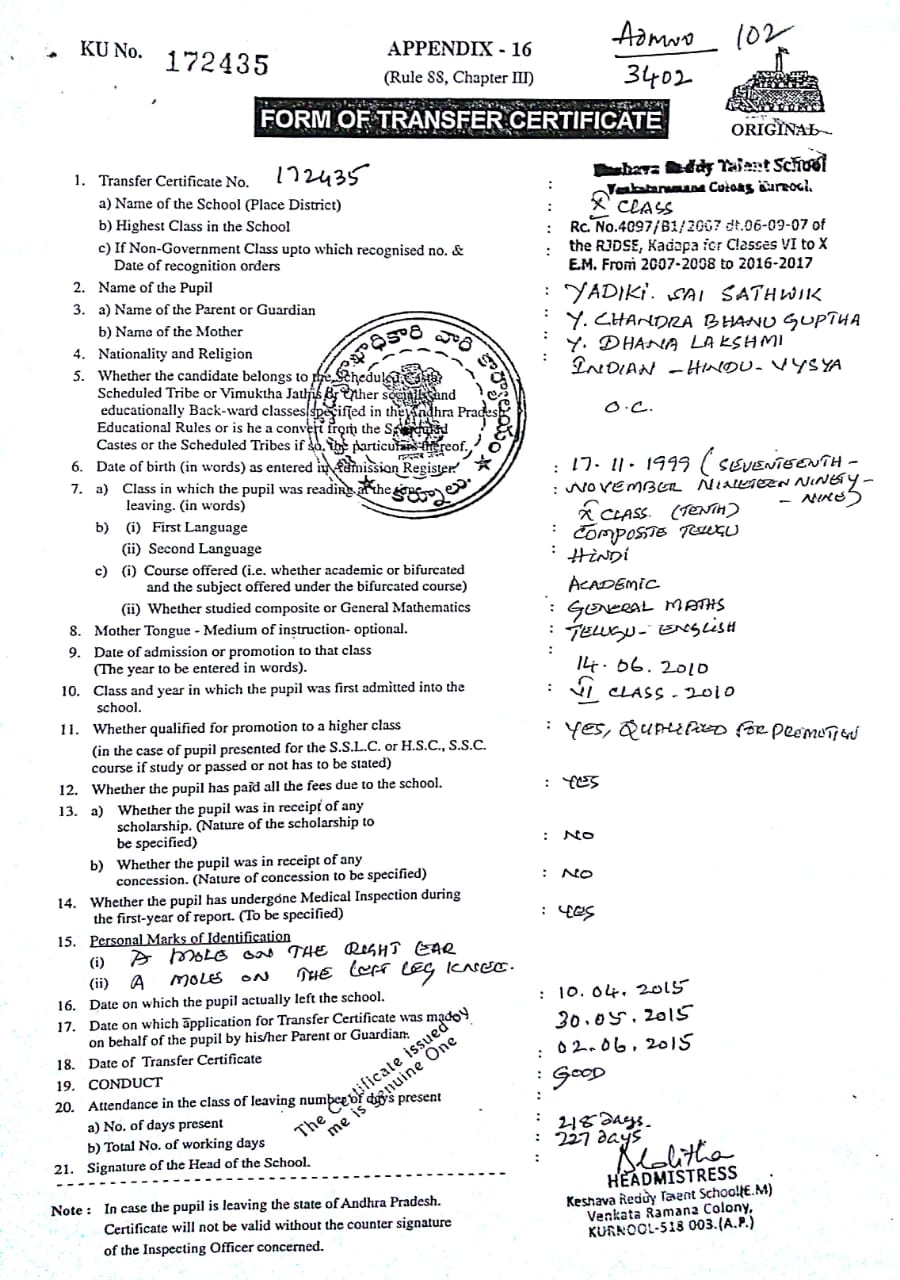 KU No. 172435
APPENDIX - 16
(Rule 88, Chapter III)
Admno 102
3402
ORIGINAL
FORM OF TRANSFER CERTIFICATE
1. Transfer Certificate No. 172435 :
Keshava Reddy Talent School
Venkataramana Colony, Kurnool.
a) Name of the School (Place District) :
b) Highest Class in the School : X CLASS
c) If Non-Government Class upto which recognised no. & : Rc. No.4097/B1/2007 dt.06-09-07 of
Date of recognition orders the RJDSE, Kadapa for Classes VI to X
E.M. From 2007-2008 to 2016-2017
2. Name of the Pupil : YADIKI. SAI SATHWIK
3. a) Name of the Parent or Guardian : Y. CHANDRA BHANU GUPTHA
b) Name of the Mother : Y. DHANA LAKSHMI
4. Nationality and Religion : INDIAN - HINDU - VYSYA
5. Whether the candidate belongs to the Scheduled Caste
Scheduled Tribe or Vimuktha Jathis or Other socially and
educationally Back-ward classes specified in the Andhra Pradesh O.C.
Educational Rules or is he a convert from the Scheduled
Castes or the Scheduled Tribes if so, the particulars thereof.
కార్యాలయం
కర్నూలు.
6. Date of birth (in words) as entered in Admission Register. : 17-11-1999 (SEVENTEENTH -
NOVEMBER NINETEEN NINETY -
- NINE)
7. a) Class in which the pupil was reading at the time : X CLASS. (TENTH)
leaving. (in words)
b) (i) First Language : COMPOSITE TELUGU
(ii) Second Language : HINDI
c) (i) Course offered (i.e. whether academic or bifurcated ACADEMIC
and the subject offered under the bifurcated course)
(ii) Whether studied composite or General Mathematics : GENERAL MATHS
8. Mother Tongue - Medium of instruction- optional. : TELUGU - ENGLISH
9. Date of admission or promotion to that class :
(The year to be entered in words). 14.06.2010
10. Class and year in which the pupil was first admitted into the : VI CLASS - 2010
school.
11. Whether qualified for promotion to a higher class : YES, QUALIFIED FOR PROMOTION
(in the case of pupil presented for the S.S.L.C. or H.S.C., S.S.C.
course if study or passed or not has to be stated)
12. Whether the pupil has paid all the fees due to the school. : YES
13. a) Whether the pupil was in receipt of any
scholarship. (Nature of the scholarship to : NO
be specified)
b) Whether the pupil was in receipt of any
concession. (Nature of concession to be specified) : NO
14. Whether the pupil has undergone Medical Inspection during
the first-year of report. (To be specified) : YES
15. Personal Marks of Identification
(i) A MOLE ON THE RIGHT EAR
(ii) A MOLE ON THE LEFT LEG KNEE.
16. Date on which the pupil actually left the school. : 10.04.2015
17. Date on which application for Transfer Certificate was made 30.05.2015
on behalf of the pupil by his/her Parent or Guardian.
18. Date of Transfer Certificate : 02.06.2015
19. CONDUCT : GOOD
20. Attendance in the class of leaving number of days present :
The Certificate issued by
me is genuine One
a) No. of days present : 218 days.
b) Total No. of working days : 227 days
21. Signature of the Head of the School. :
HEADMISTRESS
Keshava Reddy Talent School(E.M)
Venkata Ramana Colony,
KURNOOL-518 003.(A.P.)
Note : In case the pupil is leaving the state of Andhra Pradesh.
Certificate will not be valid without the counter signature
of the Inspecting Officer concerned.